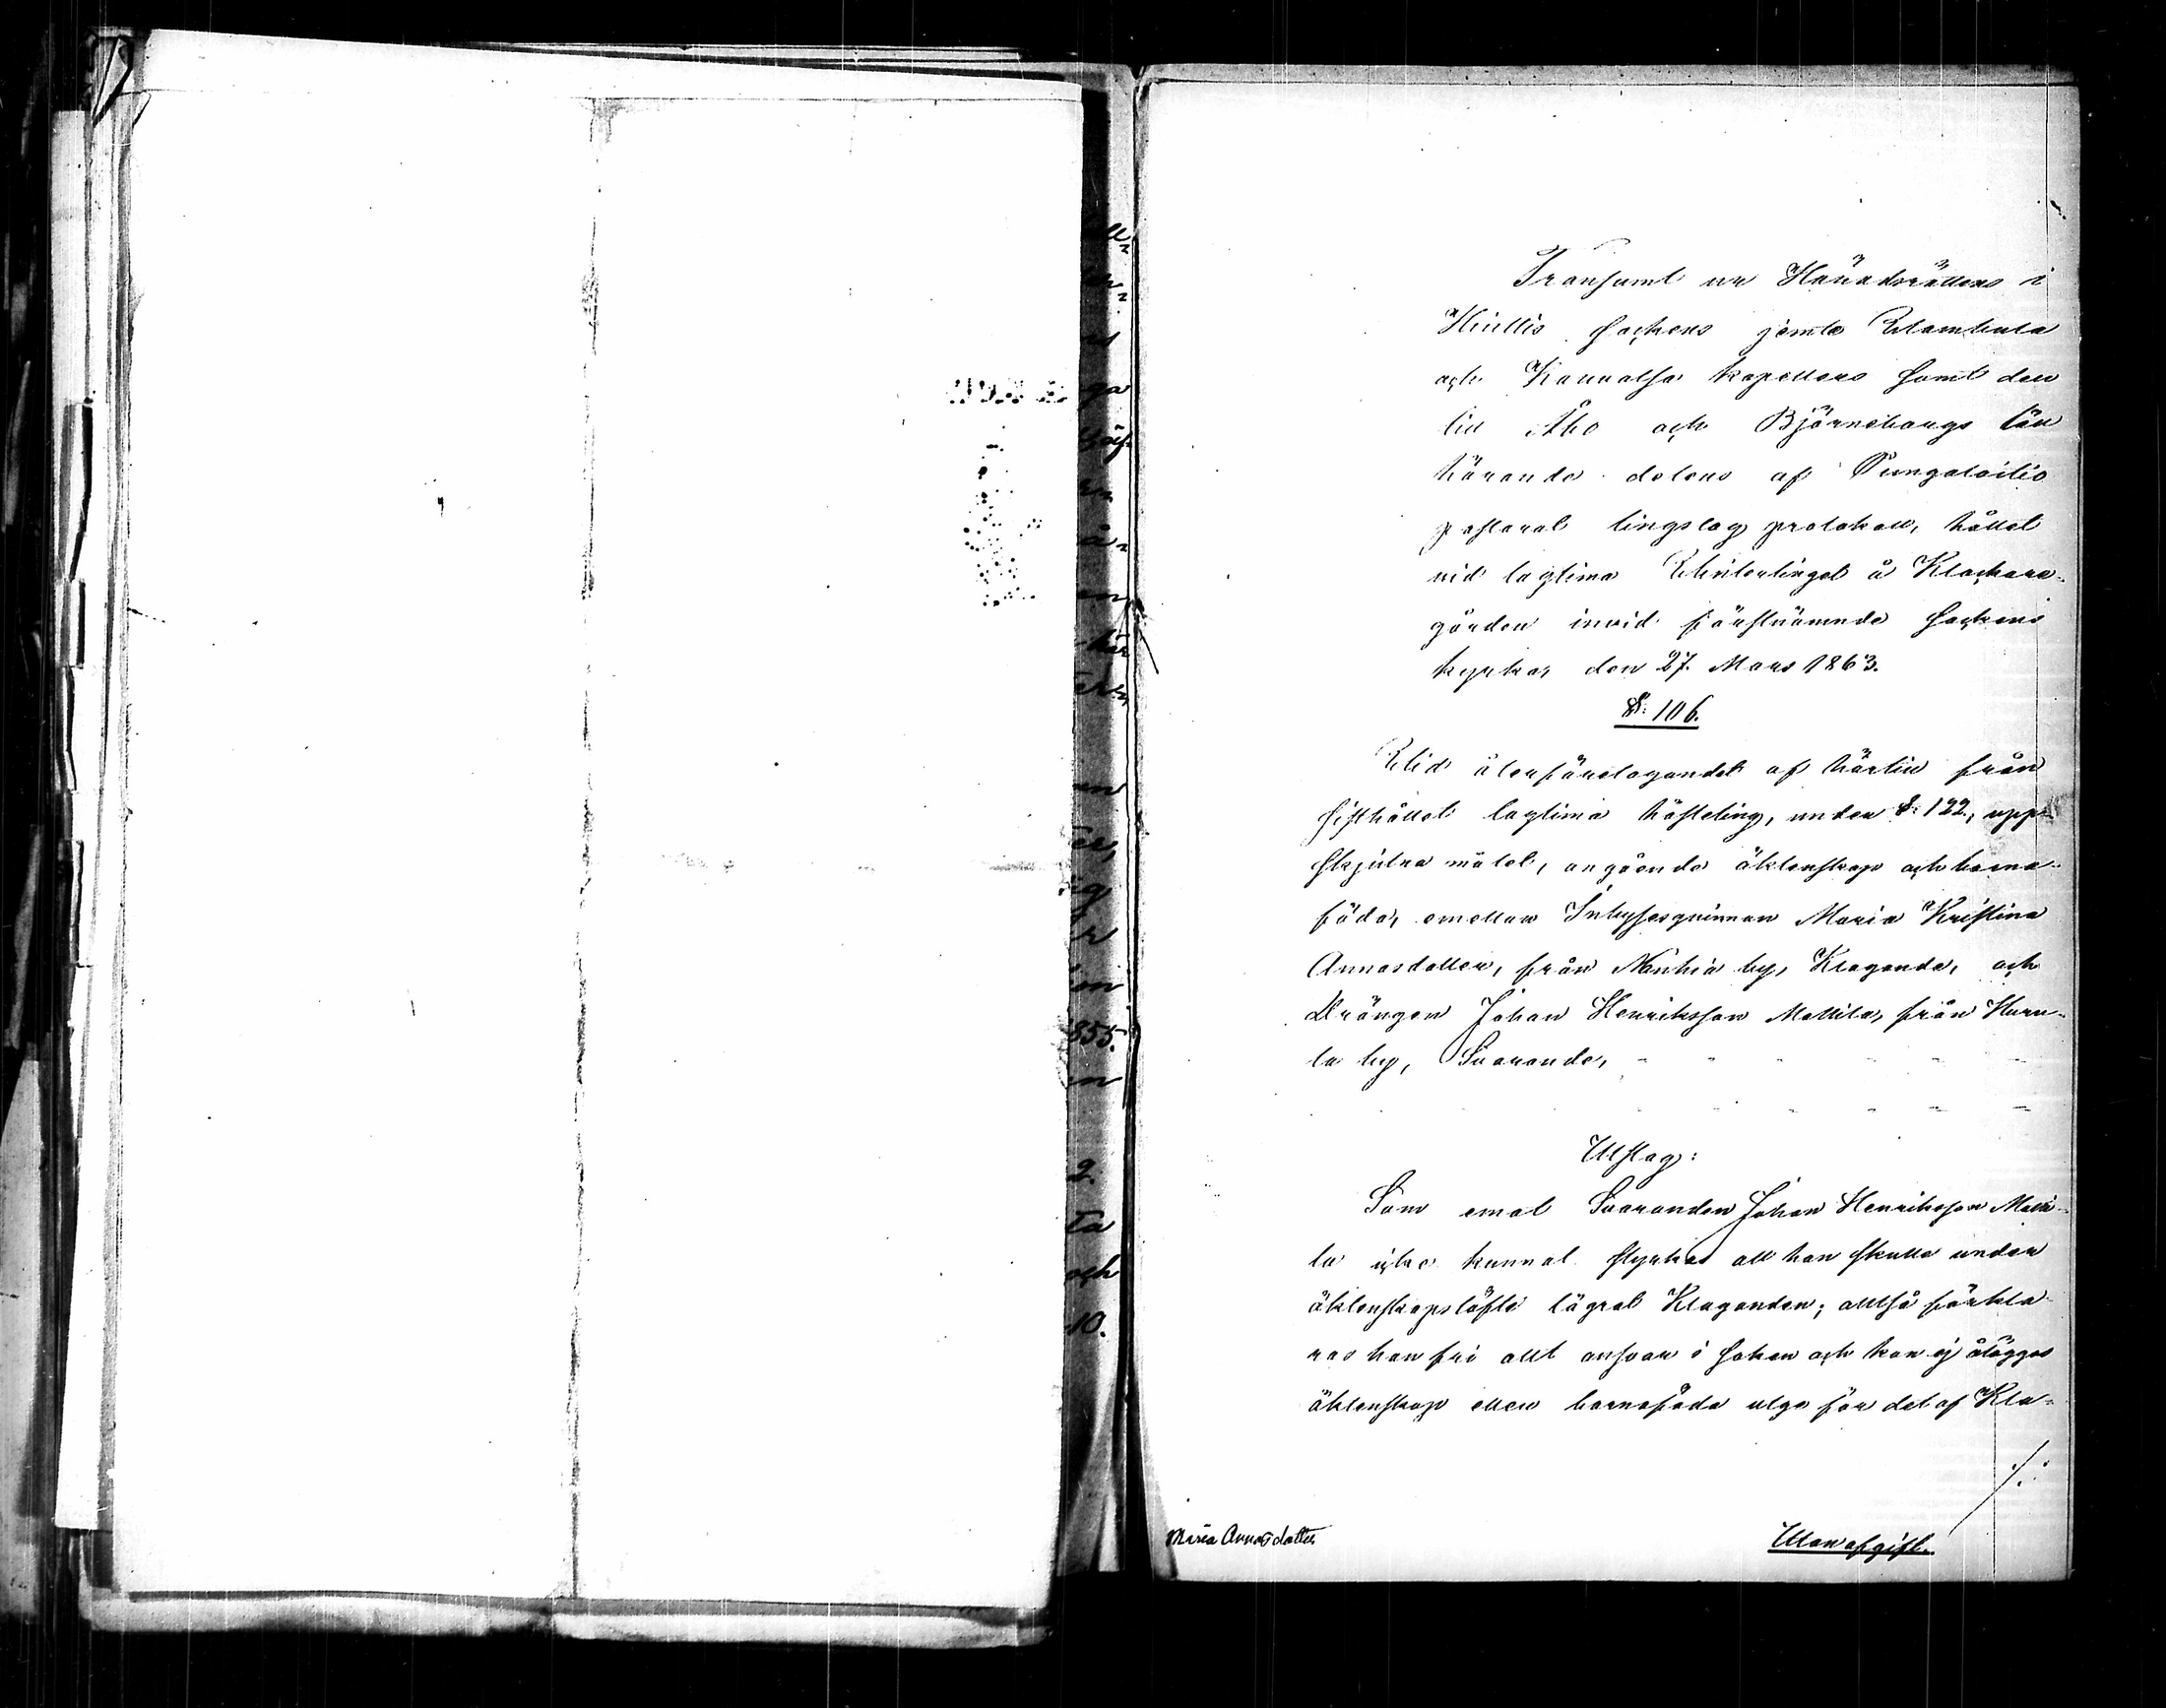 Transumt ur Häradsrättens i
Huittis sockens jemte Wambula
och Kauvatsa kapellers samt den
till Åbo och Björneborgs län
hörande delens af Pungalaitio
pastorat tingslag protokoll, hållet
vid lagtima Wintertinget å Klockare-
gården invid förstnämnde sockens
kyrka, den 27. Mars 1863.
§: 106.
Wid återföretagandet af härtill från
sisthållet lagtima hösteting, under §: 122., upp-
skjutna målet, angående äktenskap och barna-
föda, emellan Inhysesqvinnan Maria Kristina
Annasdotter, från Nanhia by, Klagande, och
Drängen Johan Henriksson Mattila, från Huru-
la by, Svarande,
Utslag:
Som emot Svaranden Johan Henriksson Matti-
la icke kunnat styrkas att han skulle under
äktenskapslöfte lägrat Klaganden; alltså förkla-
ras han fri allt ansvar i saken och kan ej åläggas
äktenskap eller barnaföda utge för det af Kla-
./.
Maria Annasdotter
Utan afgift.
ga
er
855.
2.
och
10.